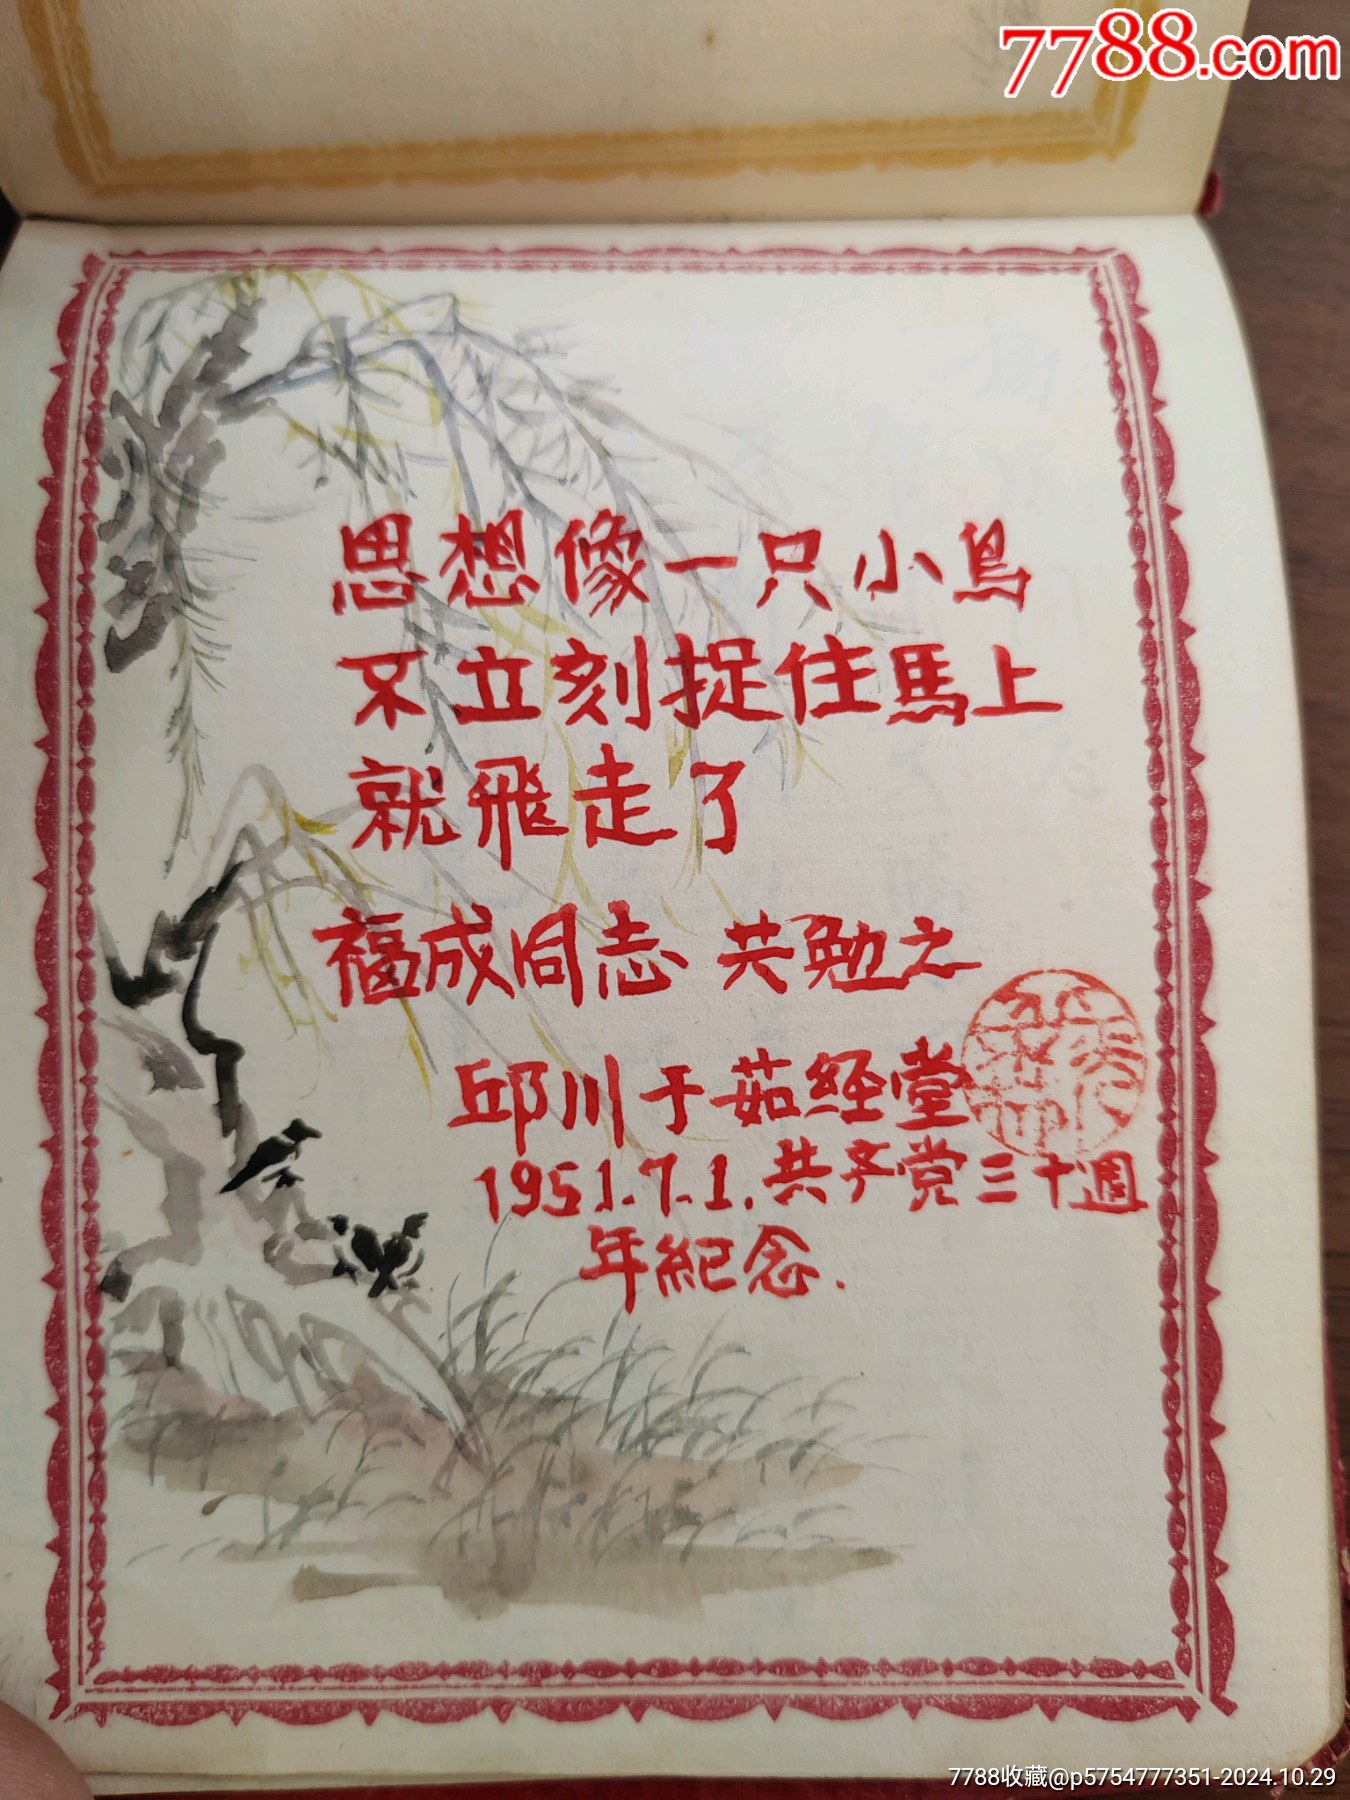 7788.com
思想像一只小鳥
不立刻捉住馬上
就飛走了
福成同志 共勉之
邱川于茹経堂
1951.7.1.共产党三十週
年紀念.
7788收藏@p5754777351-2024.10.29